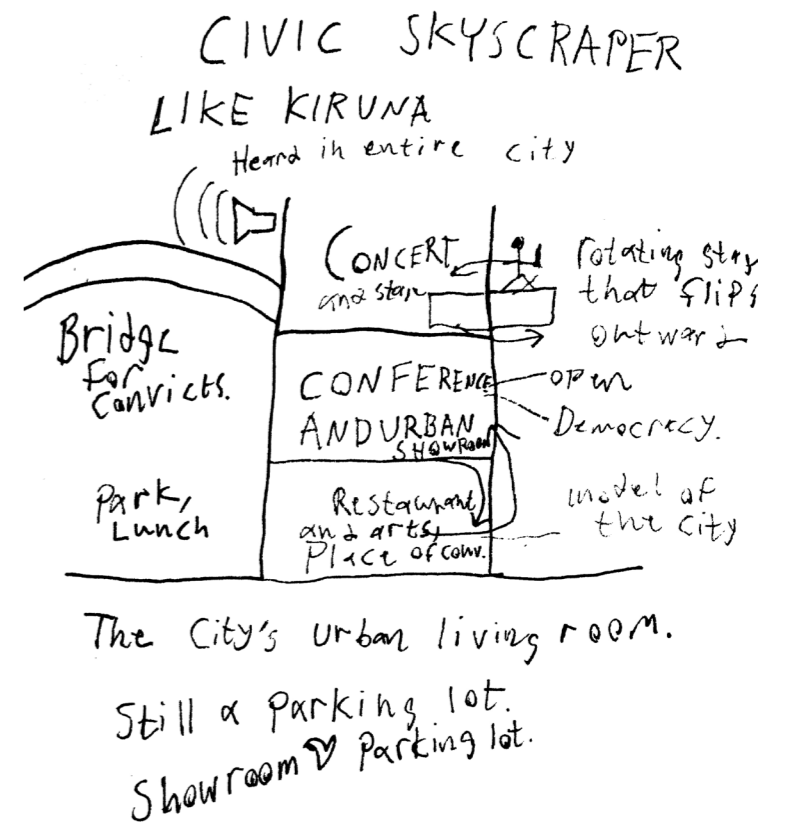 CIVIC SKYSCRAPER
LIKE KIRUNA
Heard in entire city
CONCERT
and stage
rotating stag
that flips
outward
Bridge
For
Convicts.
CONFERENCE
AND URBAN
SHOWROOM
open
Democracy.
Park,
Lunch
Restaurant
and arts,
Place of conv.
model of
the city
The City's urban living room.
Still a parking lot.
Showroom ♡ parking lot.